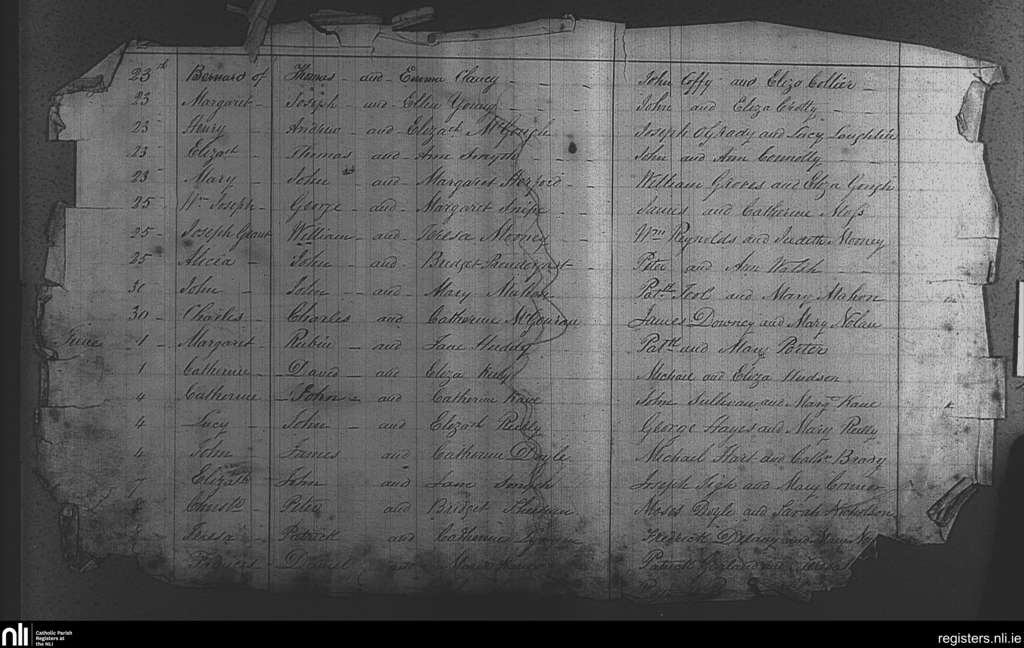 23rd Bernard of Thomas - and - Emma Clancy - John Coffy and Eliza Collier -
23 Margaret - Joseph - and - Ellen Young - John and Eliza Crotty -
23 Henry - Andrew - and - Elizath McGough Joseph O'Grady and Lucy Loughlin
23 Elizath - Thomas and - Ann Smyth John and Ann Connolly
23 Mary - John - and - Margaret William Groves and Eliza Gough
25 Wm Joseph - George - and - Margaret Snipe James and Catherine Moss
25 - Joseph Grant William - and - Teresa Mooney Wm Reynolds and Judeth Mooney
25 Alicia - John - and - Bridget Prendergast - Peter and Ann Walsh
30 John - John - and - Mary Mahon Patk and Mary Mahon
30 Charles - Charles and - Catherine McGouran James Downey and Mary Nolan
June 1 - Margaret - Rubin - and - Jane Huddy Patk and Mary Porter
1 Catherine - David - and Eliza Michael and Eliza Hudson
4 Catherine - John - and Catherine Kane John Sullivan and Mary Kane
4 Lucy - John - and Elizath Reilly George Hayes and Mary Reilly
4 John - James and Catherine Doyle Michael Hart and Cathe Brady
7 Elizath - John and Jane Smyth Joseph and Mary Connor
Christr - Peter and Bridget Moses Doyle and Sarah Nicholson
Teresa - Patrick and Catherine Fredrick and Mary
Daniel and Patrick and
nli Catholic Parish
Registers at
the NLI
registers.nli.ie